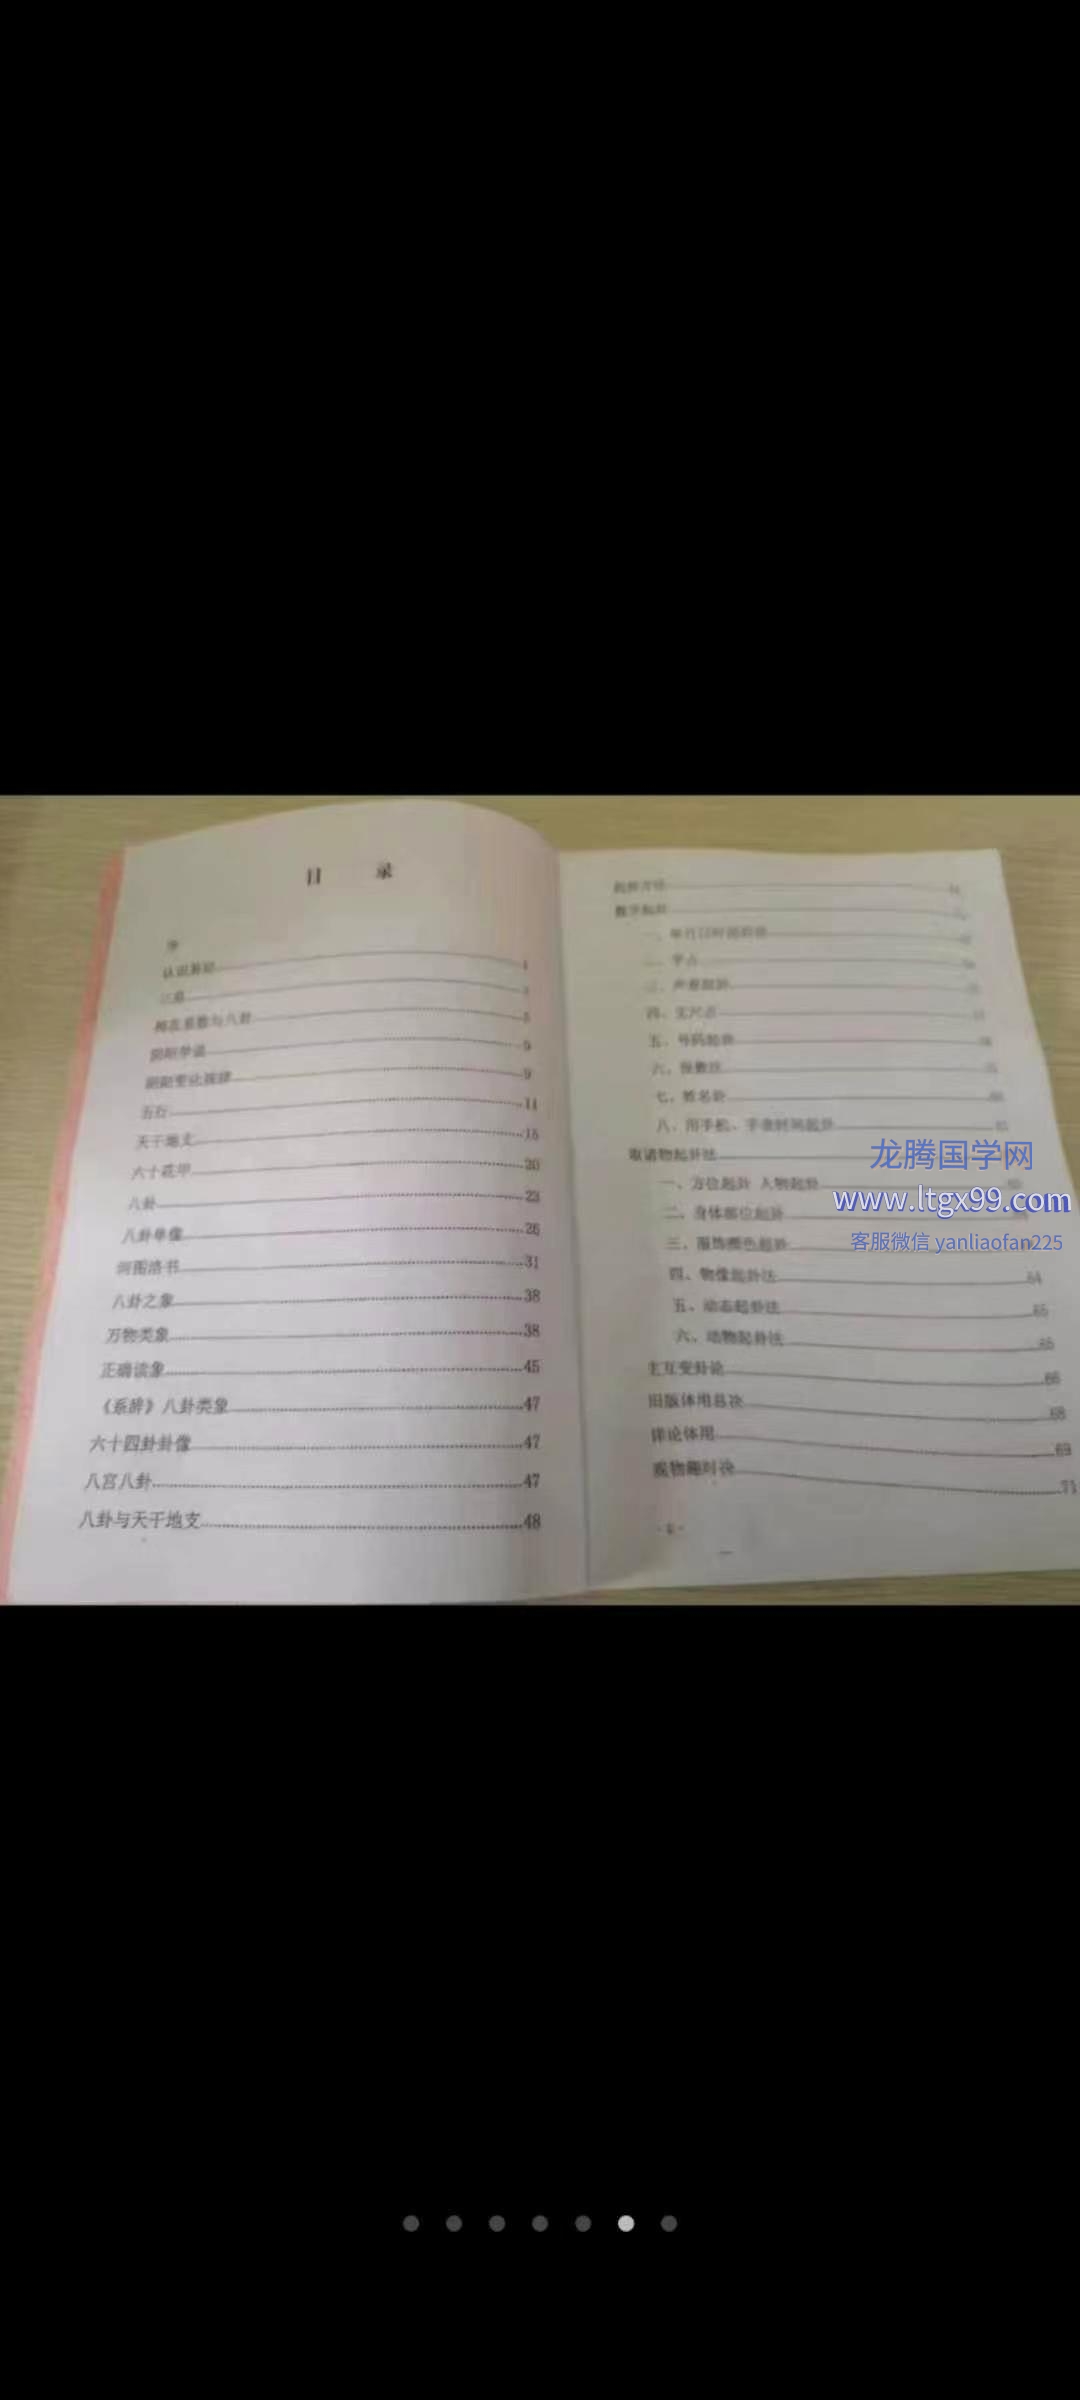 目 录
序
认识易经 1
三易
梅花易数与八卦 5
阴阳学说 9
阴阳变化规律 9
五行 11
天干地支 15
六十花甲 20
八卦 23
八卦单像 26
河图洛书 31
八卦之象 38
万物类象 38
正确读象 45
《系辞》八卦类象 47
六十四卦卦像 47
八宫八卦 47
八卦与天干地支 48
起卦方法
数字起卦
一、年月日时起卦法
二、字占
三、声音起卦
四、丈尺占
五、号码起卦
六、报数法
七、姓名卦
八、用手机、手表时间起卦
取诸物起卦法
一、方位起卦 人物起卦
二、身体部位起卦
三、服饰颜色起卦
四、物像起卦法 64
五、动态起卦法 65
六、动物起卦法 65
主互变卦论 66
旧版体用总决 68
详论体用 69
观物趣时决 71
龙腾国学网
www.ltgx99.com
客服微信 yanliaofan225